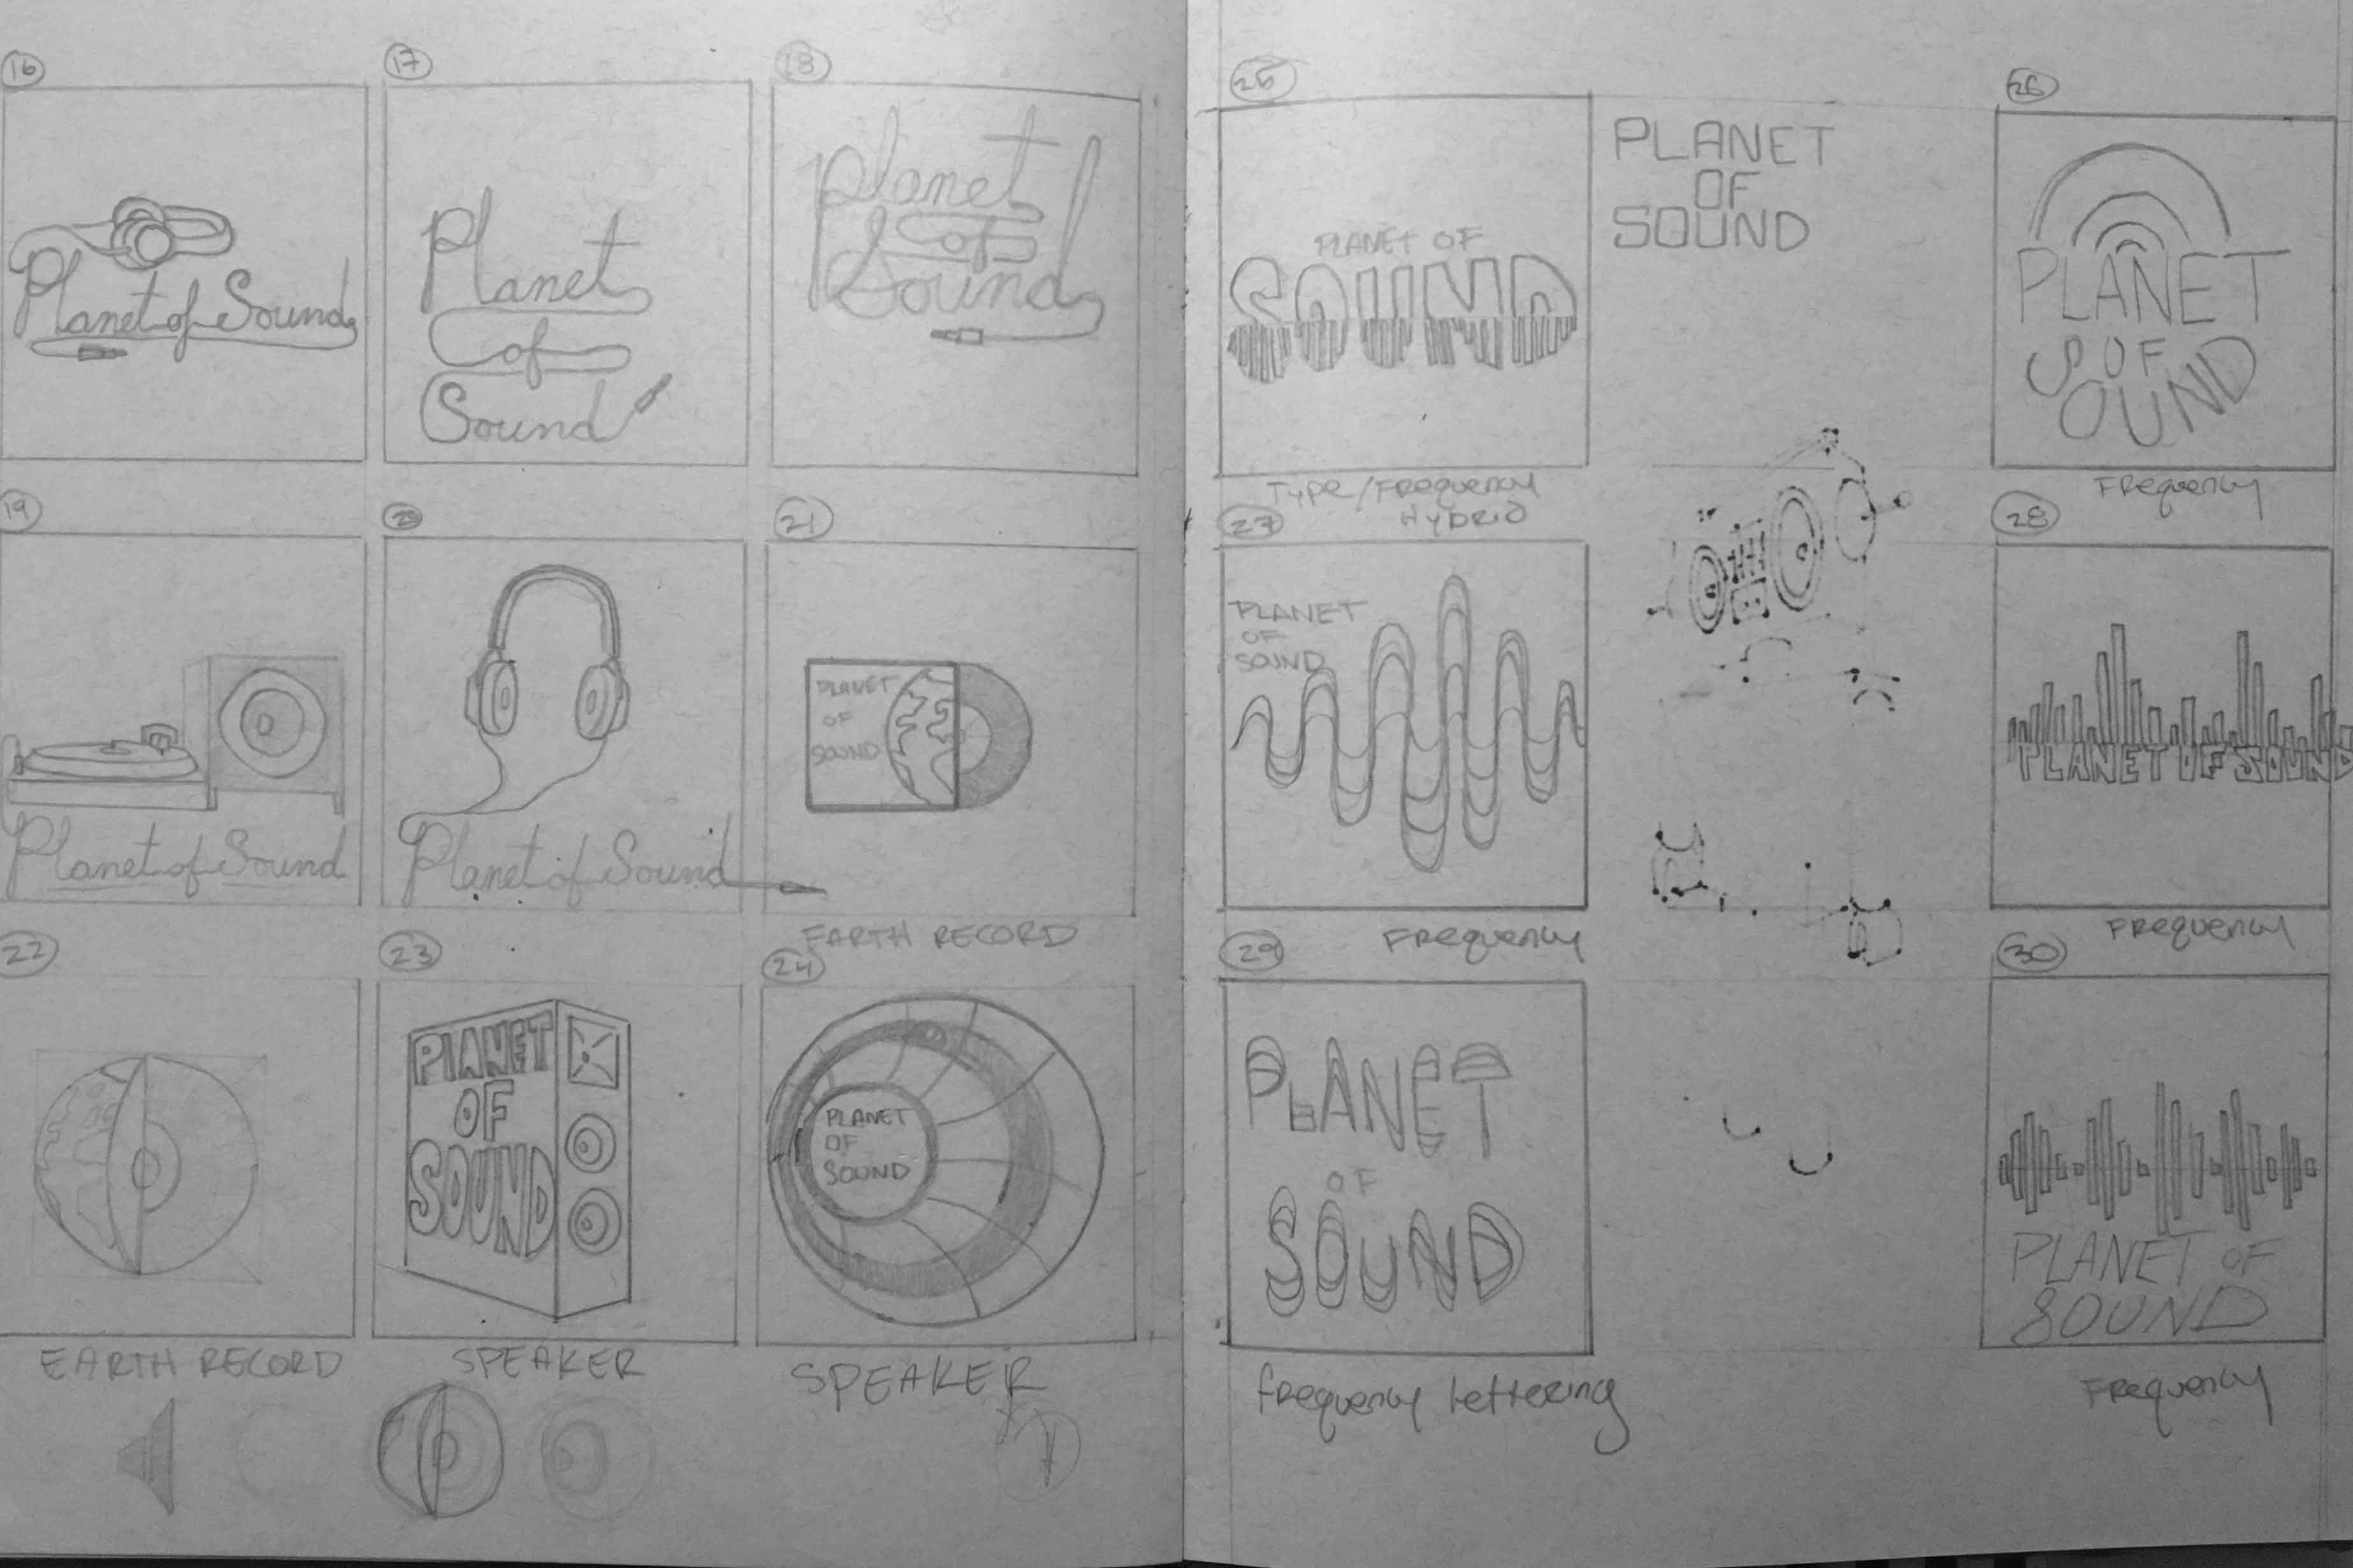 16
Planet of Sound
17
Planet
of
Sound
18
Planet
of
Sound
19
Planet of Sound
20
Planet of Sound
21
PLANET
OF
SOUND
EARTH RECORD
22
EARTH RECORD
23
PLANET
OF
SOUND
SPEAKER
24
PLANET
OF
SOUND
SPEAKER
25
PLANET OF
SOUND
Type/Frequency
Hybrid
PLANET
OF
SOUND
26
PLANET
OF
SOUND
Frequency
27
PLANET
OF
SOUND
Frequency
28
PLANET OF SOUND
Frequency
29
PLANET
OF
SOUND
frequency lettering
30
PLANET OF
SOUND
Frequency